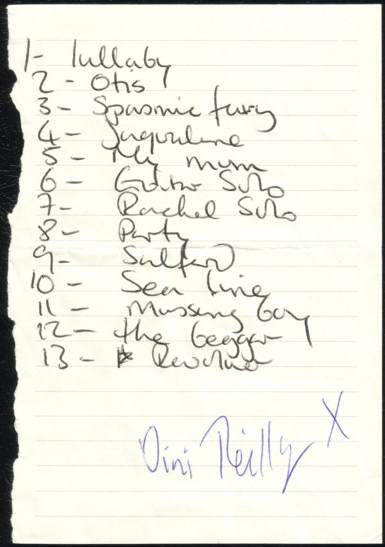 1- lullaby
2- Otis
3- Spasmic fairy
4- Jaqueline
5- My mum
6- Guitar Solo
7- Rachel Solo
8- Party
9- Salford
10- Sea line
11- Missing boy
12- the beggar
13- Requiem
Vini Reilly X